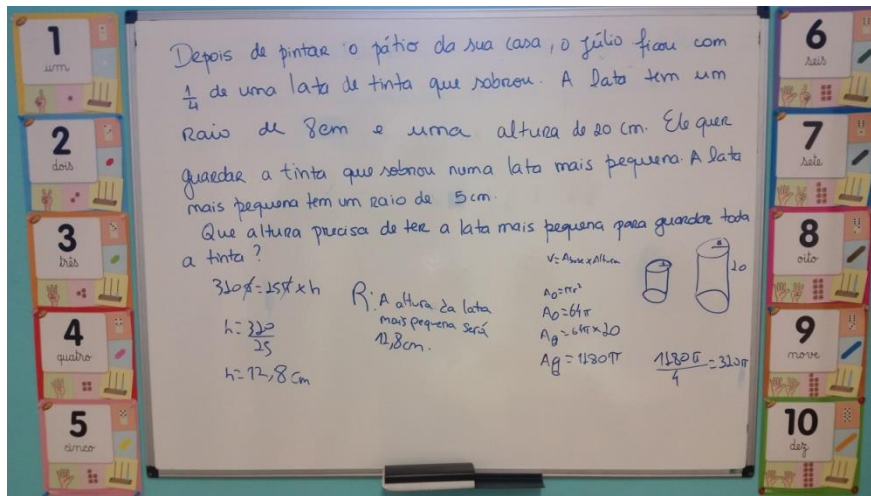 1
um
2
dois
3
três
4
quatro
5
cinco
Depois de pintar o pátio da sua casa, o Júlio ficou com
1/4 de uma lata de tinta que sobrou. A lata tem um
raio de 8cm e uma altura de 20 cm. Ele quer
guardar a tinta que sobrou numa lata mais pequena. A lata
mais pequena tem um raio de 5cm.
Que altura precisa de ter a lata mais pequena para guardar toda
a tinta?
320π=25π×h
h=320/25
h=12,8cm
R: A altura da lata
mais pequena será
12,8cm.
V=Abase×Altura
Ao=πr²
Ao=64π
Ag=64π×20
Ag=1280π
1280π/4=320π
20
6
seis
7
sete
8
oito
9
nove
10
dez